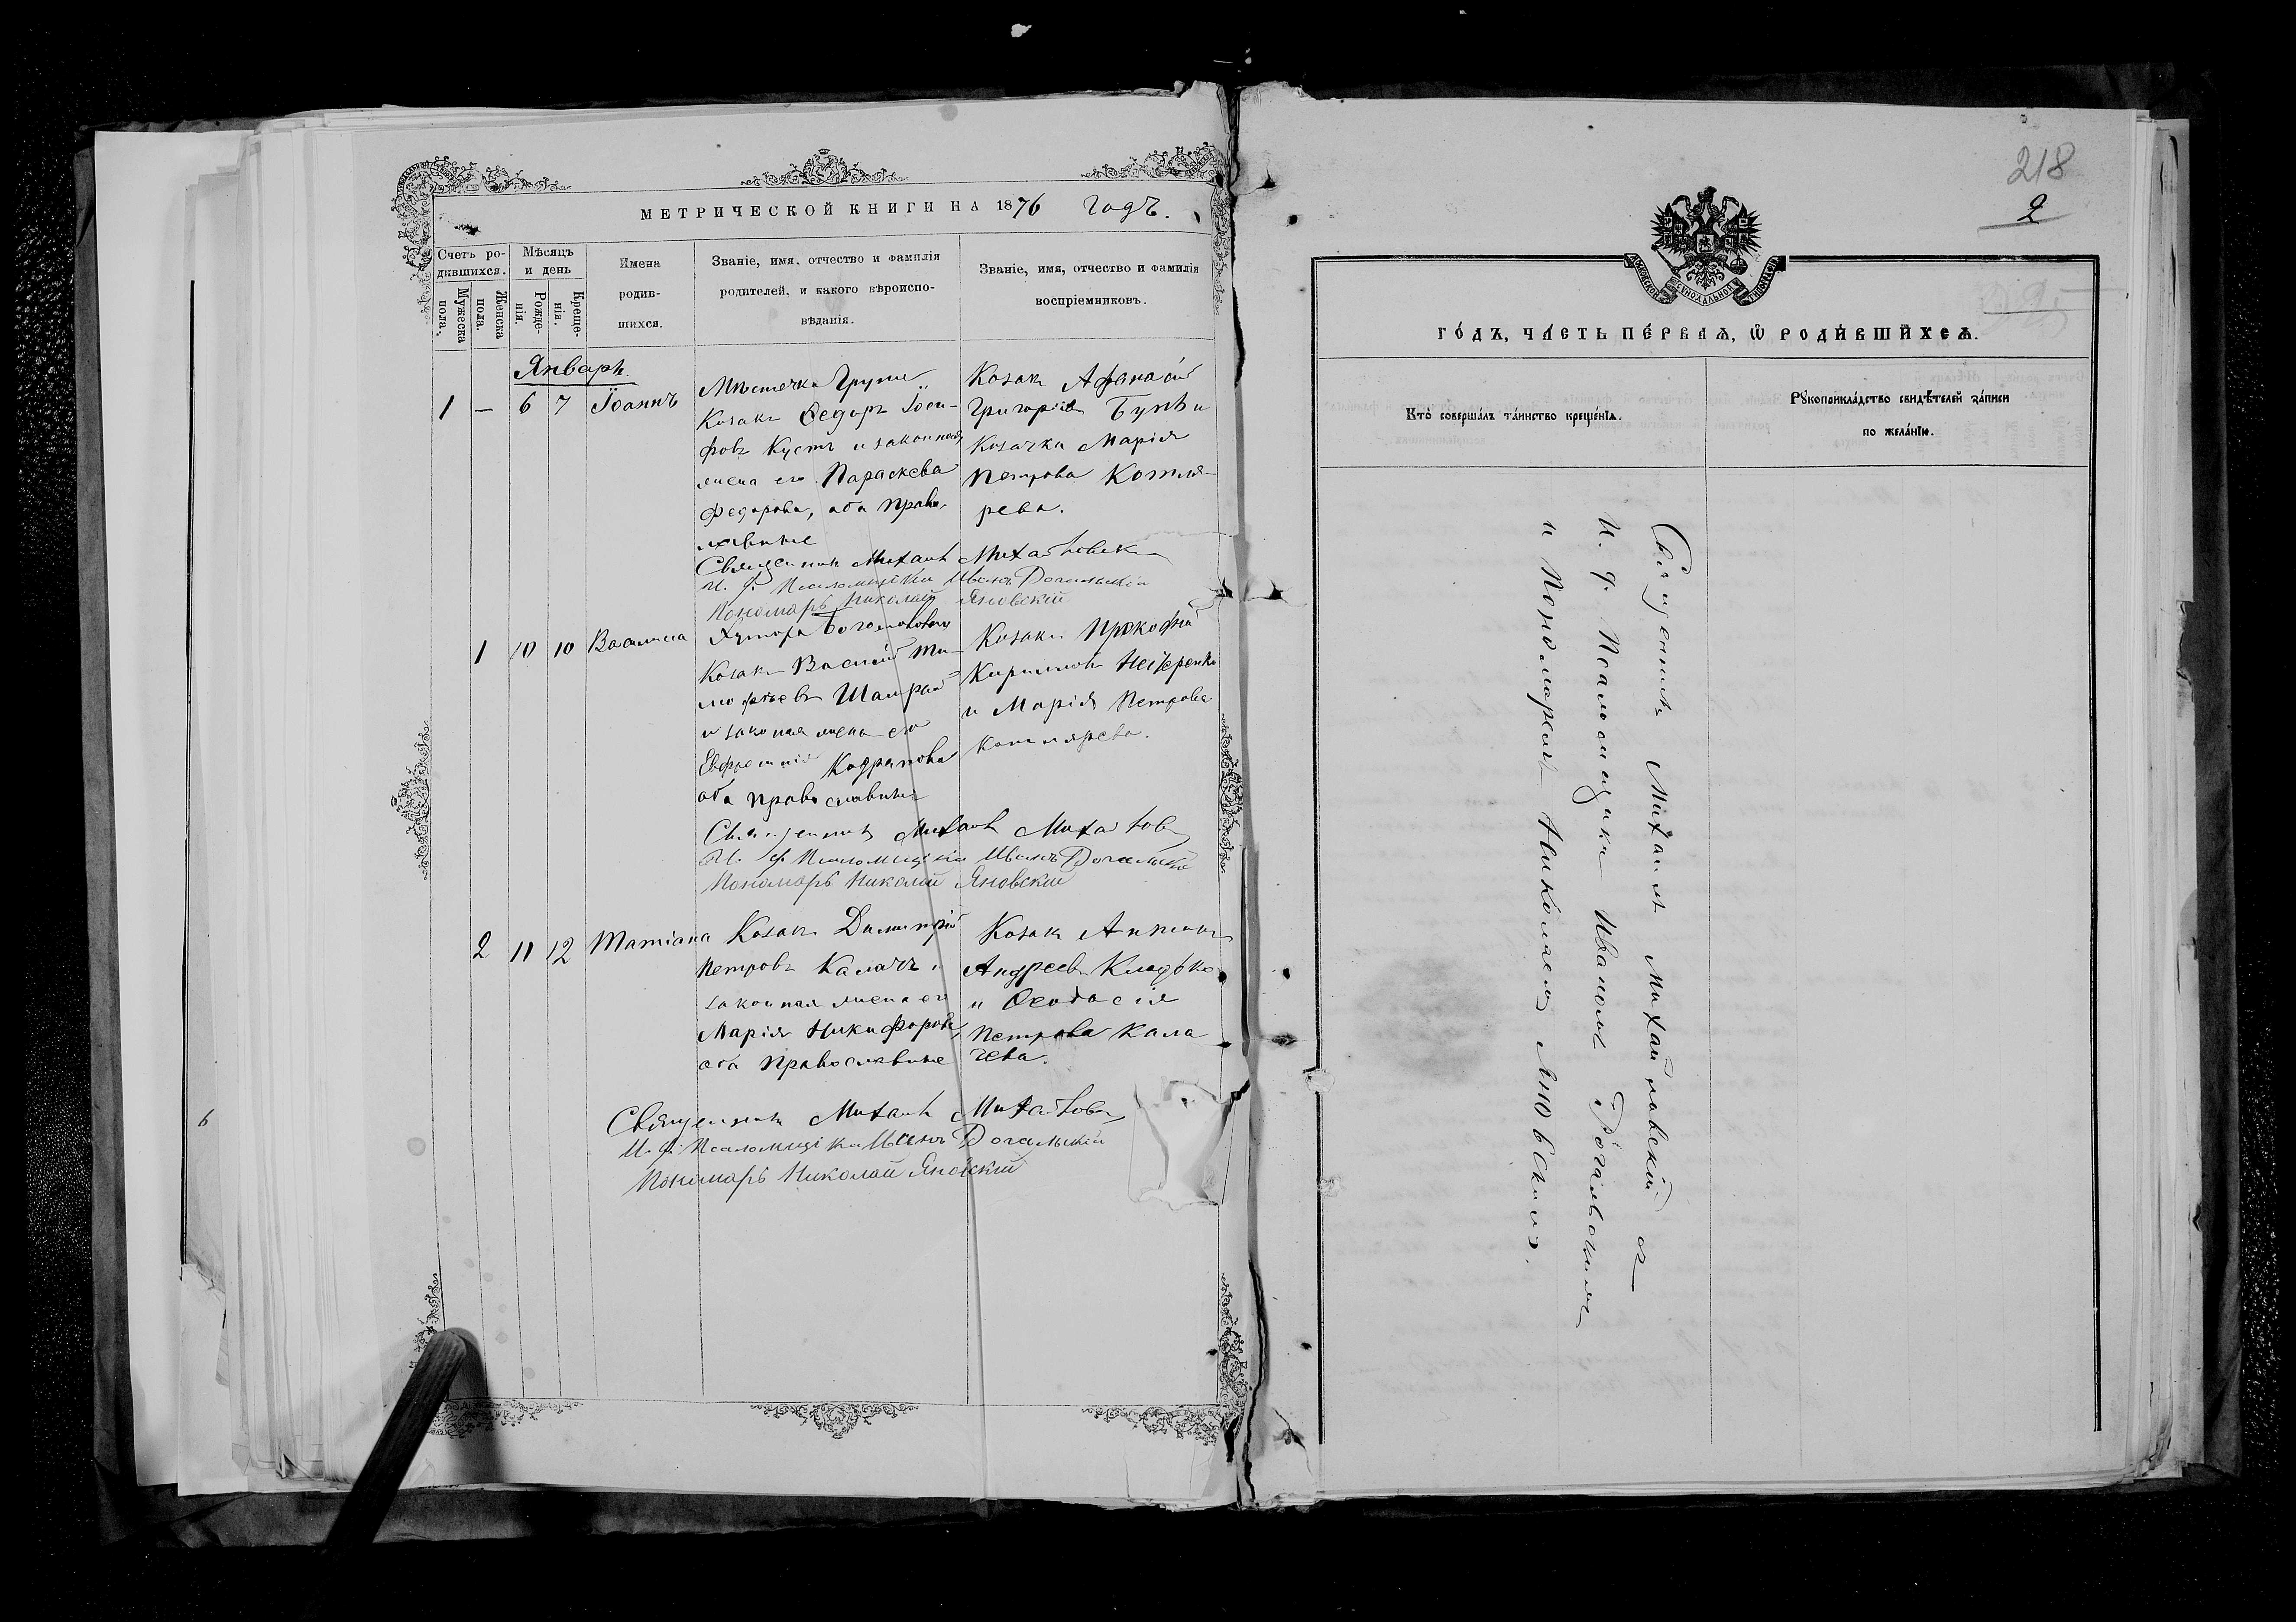 МЕТРИЧЕСКОЙ КНИГИ НА 1876 годъ.
Счетъ ро-
дившихся.
Мужеска
пола.
Женска
пола.
Мѣсяцъ
и день
Рожде-
нія.
Креще-
нія.
Имена
родив-
шихся.
Званіе, имя, отчество и фамилія
родителей, и какого вѣроиспо-
вѣданія.
Званіе, имя, отчество и фамилія
воспріемниковъ.
Январь.
1 — 6 7 Іоаннъ
Мѣстечка Груни
Козакъ Ѳедоръ Іоси-
фовъ Кустъ и законная
жена его Параскева
Федорова, оба право-
славные
Козакъ Афанасій
Григоріев и
Козачка Марія
Петрова Котля-
рева.
Священникъ Михаилъ Михайловскій
И. ф. Псаломщика Иванъ
Пономарь Николай Яновскій
1 10 10 Василиса
Хутора
Козакъ Василій Ти-
мофѣевъ Шамрай
и законая жена его
оба православные
Козакъ Прокофій
Кирилловъ
и Марія Петрова
Котлярева.
Священникъ Михаилъ
И. ф. Псаломщика Иванъ
Пономарь Николай Яновскій
2 11 12 Татіана
Козакъ Димитрій
Петровъ Калачъ и
законная жена его
Марія Никифорова,
оба православные
Козакъ Антонъ
Андреевъ
и Ѳеодосія
Петрова Кала
чева.
Священникъ Михаилъ
И. ф. Псаломщика Иванъ
Пономарь Николай Яновскій
6
218
2
МОСКОВСКОЙ СѴНОДАЛЬНОЙ ТИПОГРАФІИ
ГО́ДЪ, ЧА́СТЬ ПЕ́РВАѦ, Ѡ҆ РОДИ́ВШИХСѦ.
Кто̀ соверша́лъ та́инство креще́нїѧ.
Рꙋкоприкла́дство свидѣ́телей за́писи
по жела́нїю.
Священникъ Михаилъ Михайловскій съ
И. ф. Псаломщика Иваномъ
и Пономаремъ Николаемъ Яновскимъ.